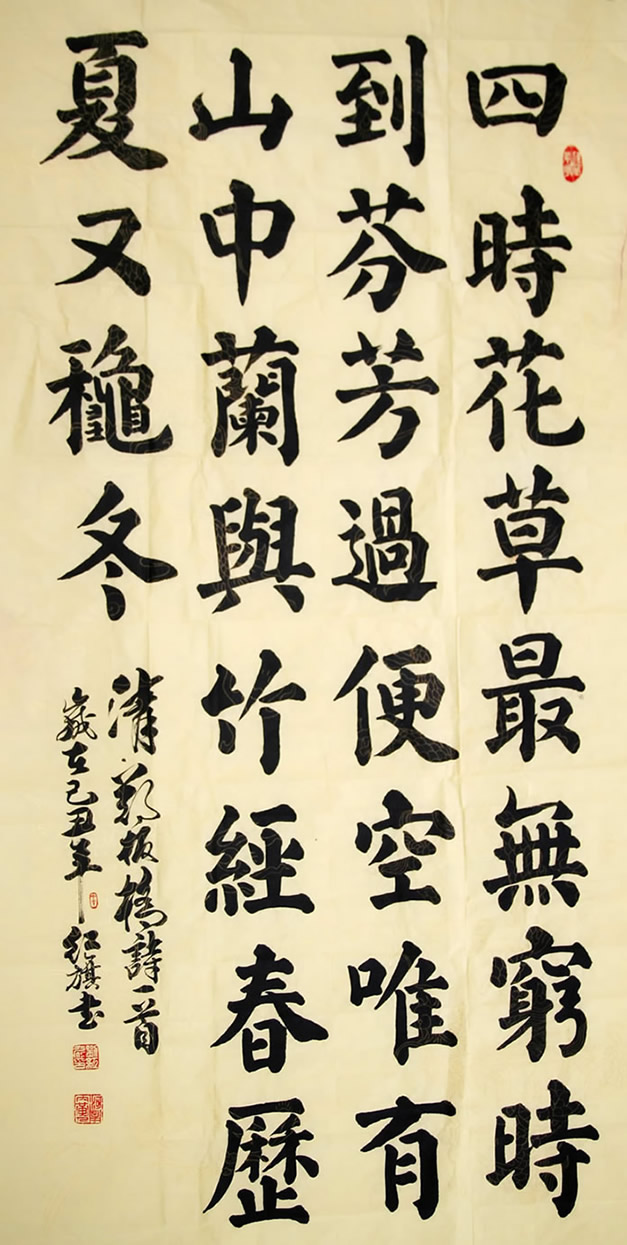 四時花草最無窮時
到芬芳過便空唯有
山中蘭與竹經春歷
夏又穐冬
清鄭板橋詩一首
歲在己丑年紅旗书